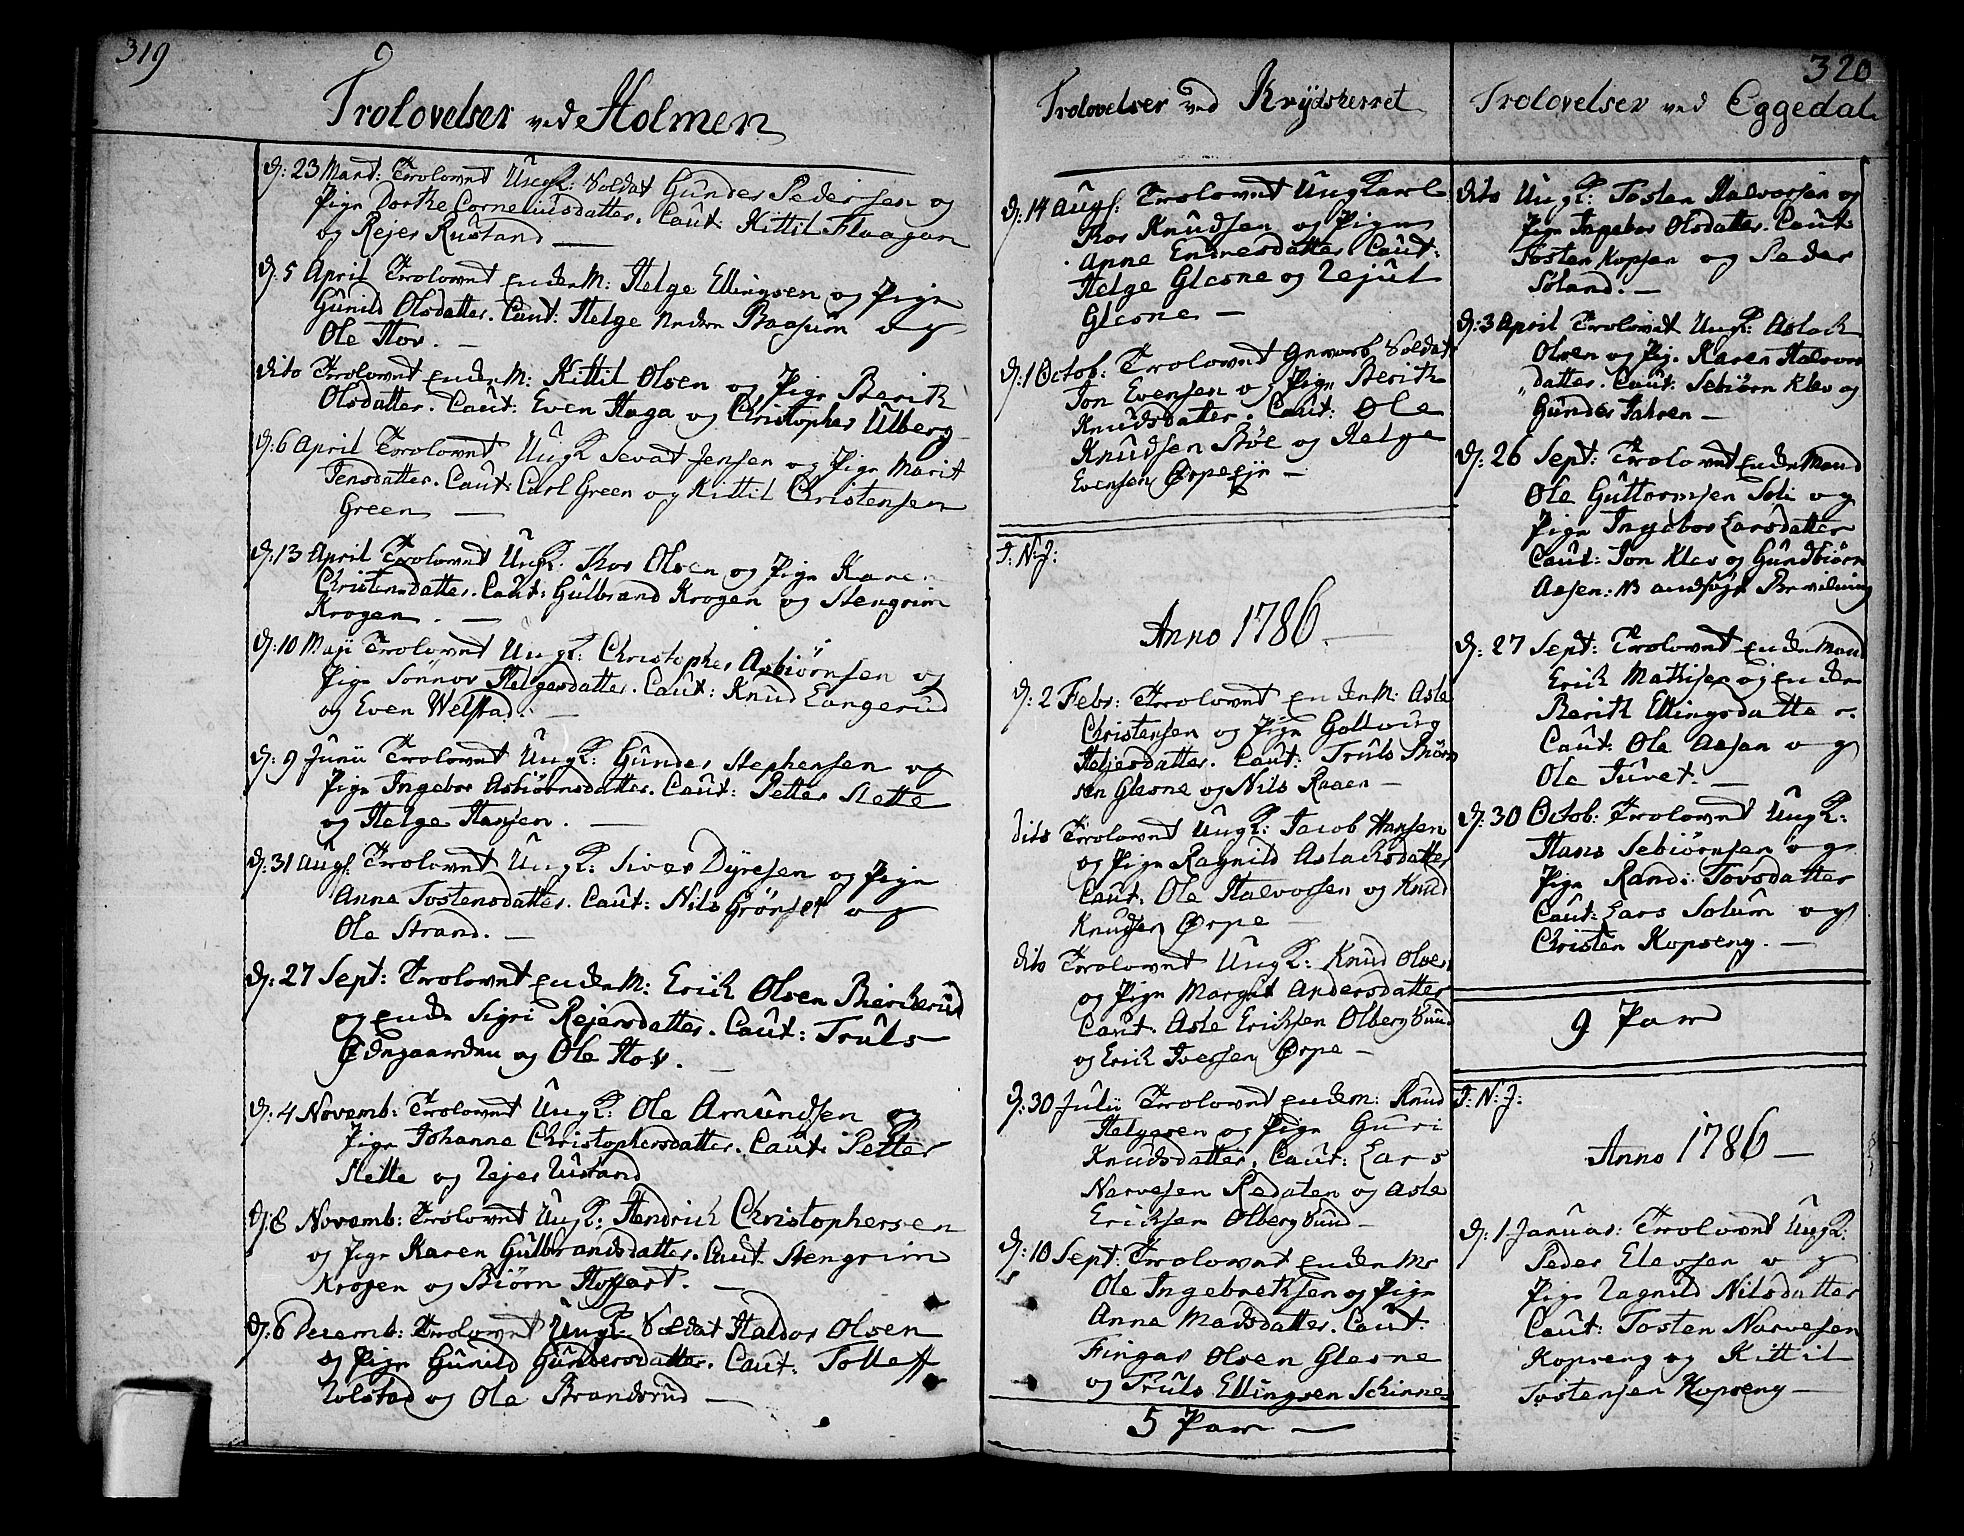 319
Trolovelser ved Holmen
d: 23 Mart: Trolovet Ungk: Soldat Gunder Pedersen og
Pige Dorthe Corneliusdatter. Caut: Kittil Flaagan
og Rejer Rustand —
d: 5 April Trolovet Enke M: Helge Ellingsen og Pige
Gunild Olsdatter. Caut: Helge Nedre Baasum og
Ole Hov. —
dito Trolovet Enke M: Kittil Olsen og Pige Berith
Olsdatter. Caut: Even Haga og Christopher Ulberg
d: 6 April Trolovet Ungk Sevat Jensen og Pige Marit
Jensdatter. Caut: Carl Green og Kittil Christensen
Green —
d: 13 April Trolovet Ungk: Thor Olsen og Pige Karen
Christensdatter. Caut: Gulbrand Krogen og Stengrim
Krogen. —
d: 10 Maji Trolovet Ungk: Christopher Asbiörnsen og
Pige Sönnov Helgesdatter. Caut: Knud Langerud
og Even Welstad. —
d: 9 Junii Trolovet Ungk: Gunder Stephensen og
Pige Ingebor Asbiörnsdatter. Caut: Petter Slette
og Helge Hansen. —
d: 31 Augs: Trolovet Ungk: Siver Dyresen og Pige
Anne Tostensdatter. Caut: Nils Grönset og
Ole Strand. —
d: 27 Sept: Trolovet Enke M: Erich Olsen Bierkerud
og Enke Sigri Rejersdatter. Caut: Truls
Ødegaarden og Ole Hov. —
d: 4 Novemb: Trolovet Ungk: Ole Amundsen og
Pige Johanne Christophersdatter. Caut: Petter
Slette og Rejer Rustand
d: 8 Novemb: Trolovet Ungk: Hendrich Christophersen
og Pige Karen Gulbrandsdatter. Caut: Stengrim
Krogen og Biörn Hoffart. —
d: 6 Decemb: Trolovet Ungk: Soldat Haldor Olsen
og Pige Gunild Gundersdatter. Caut: Tolleff
Rolstad og Ole Brandsrud —
Trolovelser ved Krydsherret
d: 14 Augs: Trolovet Ungkarl
Thor Knudsen og Pige
Anne Endresdatter Caut:
Helge Glesne og Rejul
Glesne —
d: 1 Octob: Trolovet Gevorb Soldat
Jon Evensen og Pige Berith
Knudsdatter. Caut: Ole
Knudsen Böe og Helge
Evensen Ørpe Eje —
J: N: J:
Anno 1786. —
d: 2 Febr: Trolovet Enke M: Asle
Christensen og Pige Gollaug
Heljesdatter. Caut: Truls Biörn
sen Glesne og Nils Raaen —
dito Trolovet Ungk: Jacob Hansen
og Pige Ragnild Aslachsdatter
Caut: Ole Halvorsen og Knud
Knudsen Ørpe —
dito Trolovet Ungk: Knud Olsen
og Pige Margit Andersdatter
Caut: Asle Erichsen Olberg Sund
og Erich Iversen Ørpe —
d: 30 Julii Trolovet Enke M: Knud
Helgesen og Pige Guri
Knudsdatter. Caut: Lars
Narvesen Redalen og Asle
Erichsen Olberg Sund —
d: 10 Sept: Trolovet Enke M:
Ole Ingebrethsen og Pige
Anne Madsdatter. Caut:
Fingar Olsen Glesne
og Truls Ellingsen Skinnes
5 Par —
320
Trolovelser ved Eggedal
dito Ungk: Tosten Halvorsen og
Pige Ingebor Olsdatter. Caut:
Tosten Kopsen og Peder
Söland. —
d: 3 April Trolovet Ungk: Aslak
Olsen og Pig. Karen Halvors
datter. Caut: Sebiörn Klev og
Gunder Jahren —
d: 26 Sept: Trolovet Enke Mand
Ole Guttormsen Soli og
Pige Ingebor Larsdatter
Caut: Jon Klev og Gundbiörn
Aasen: NB Bevilning
d: 27 Sept: Trolovet Enke Mand
Erich Mathisen og Enke
Berith Ellingsdatter.
Caut: Ole Aasen og
Ole Juvet. —
d: 30 Octob: Trolovet Ungk:
Hans Sebiörnsen og
Pige Randi Tovsdatter
Caut: Lars Solum og
Christen Kopseng. —
9 Par
J: N: J:
Anno 1786 —
d: 1 Januar: Trolovet Ungk:
Peder Elevsen og
Pige Ragnild Nilsdatter
Caut: Tosten Narvesen
Kopseng og Kittil
Tostensen Kopseng —